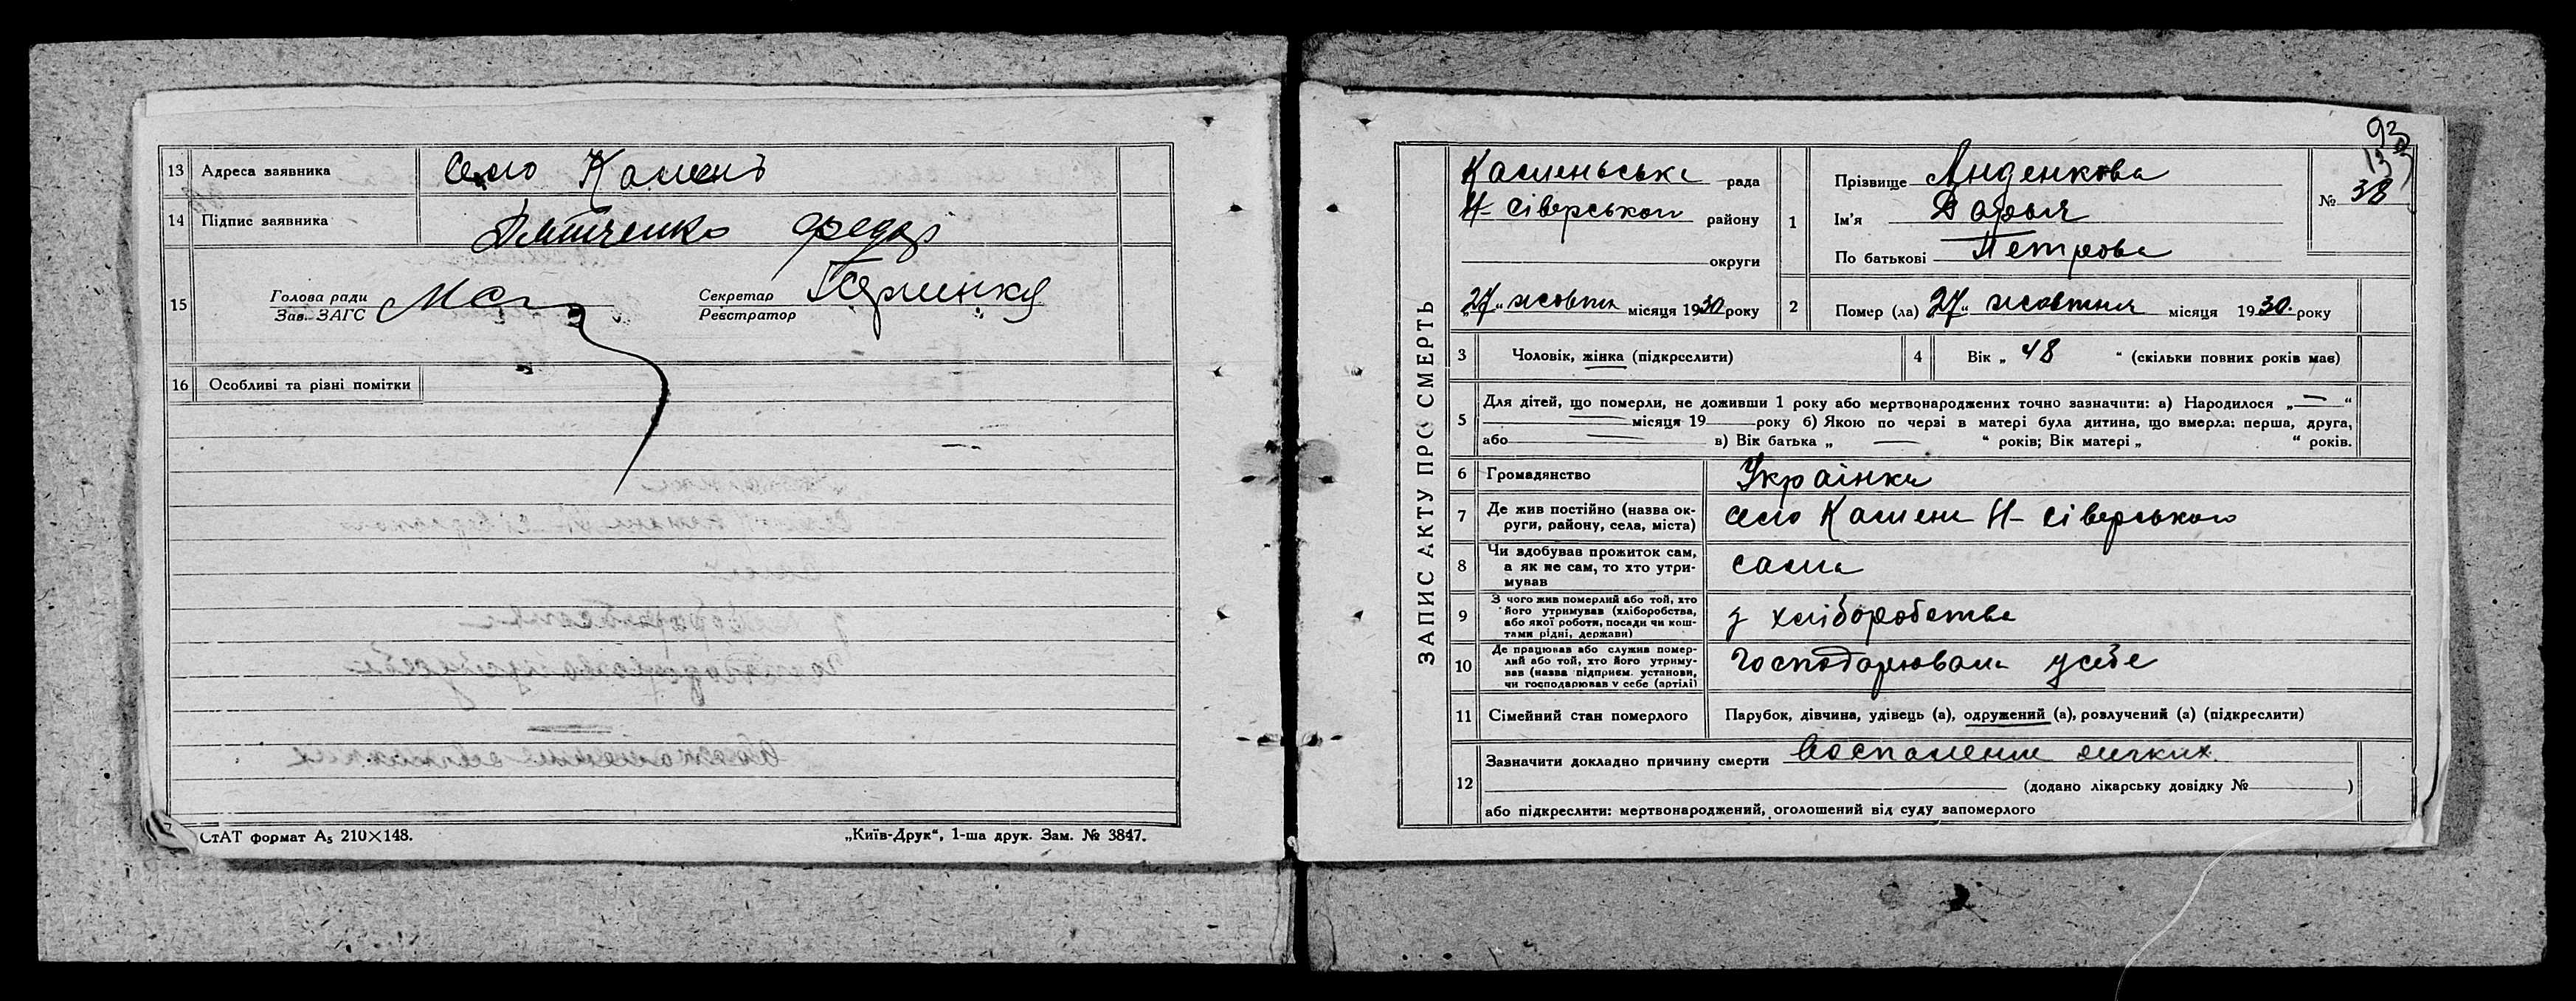 13 Адреса заявника Село Камень
14 Підпис заявника Дятченко Федір
15 Голова ради
Зав. ЗАГС
Секретар
Реєстратор
16 Особливі та різні помітки
СтАТ формат А5 210×148. „Київ-Друк“, 1-ша друк. Зам. № 3847.
93
ЗАПИС АКТУ ПРО СМЕРТЬ
Каменьська рада
Н-сіверського району
округи
„27“ жовтня місяця 1930 року
1 Прізвище Анденкова
Ім'я Дарья
По батькові Петрова
№ 38
2 Помер (ла) „27“ жовтня місяця 1930. року
3 Чоловік, жінка (підкреслити)
4 Вік „ 48 “ (скільки повних років має)
5 Для дітей, що померли, не доживши 1 року або мертвонароджених точно зазначити: а) Народилося „—“
— місяця 19 року б) Якою по черзі в матері була дитина, що вмерла: перша, друга,
або — в) Вік батька „ — “ років; Вік матері „ “ років.
6 Громадянство Українка
7 Де жив постійно (назва ок-
руги, району, села, міста) село Камень Н-сіверського
8 Чи здобував прожиток сам,
а як не сам, то хто утри-
мував сама
9 З чого жив померлий або той, хто
його утримував (хліборобства,
або якої роботи, посади чи кош-
тами рідні, держави) з хліборобства
10 Де працював або служив помер-
лий або той, хто його утриму-
вав (назва підприєм. установи,
чи господарював у себе (артілі) господарювала у себе
11 Сімейний стан померлого Парубок, дівчина, удівець (а), одружений (а), розлучений (а) (підкреслити)
12 Зазначити докладно причину смерти Воспаление легких.
(додано лікарську довідку № )
або підкреслити: мертвонароджений, оголошений від суду запомерлого